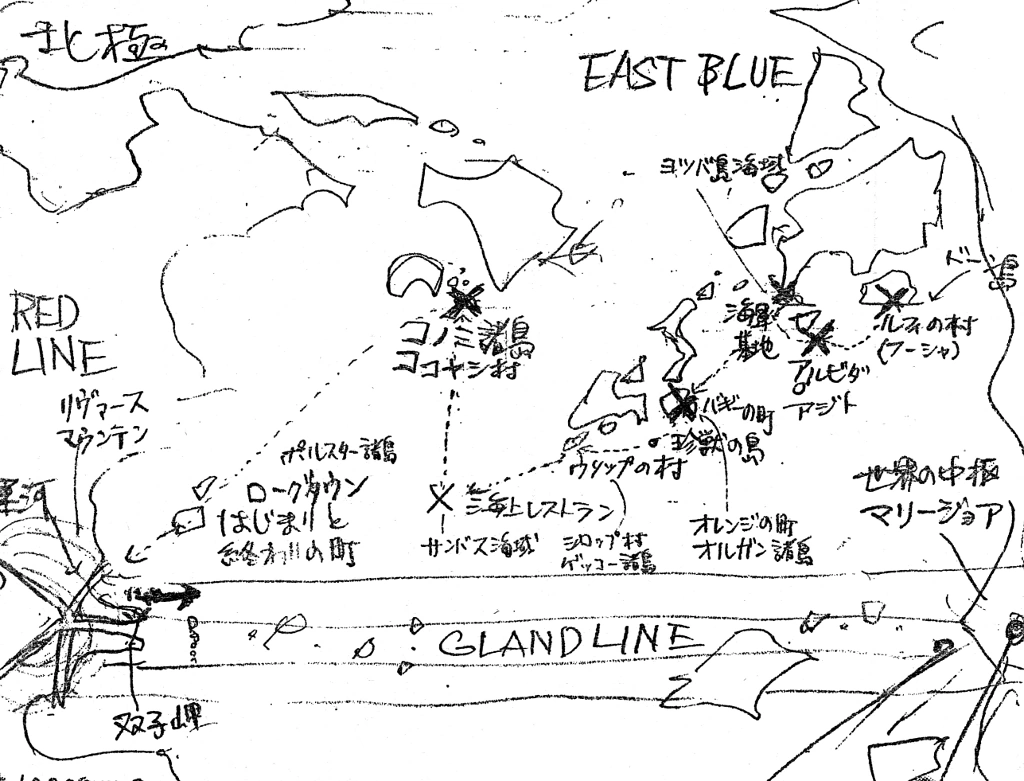 北極
EAST BLUE
ヨツバ島海域
ドーン島
RED
LINE
リヴァース
マウンテン
コノミ諸島
ココヤシ村
海軍
基地
アルビダ
アジト
ルフィの村
(フーシャ)
バギーの町
珍獣の島
ウソップの村
シロップ村
ゲッコー諸島
オレンジの町
オルガン諸島
世界の中枢
マリージョア
ポルスター諸島
ローグタウン
はじまりと
終わりの町
海上レストラン
サンバス海域
GLAND LINE
双子岬